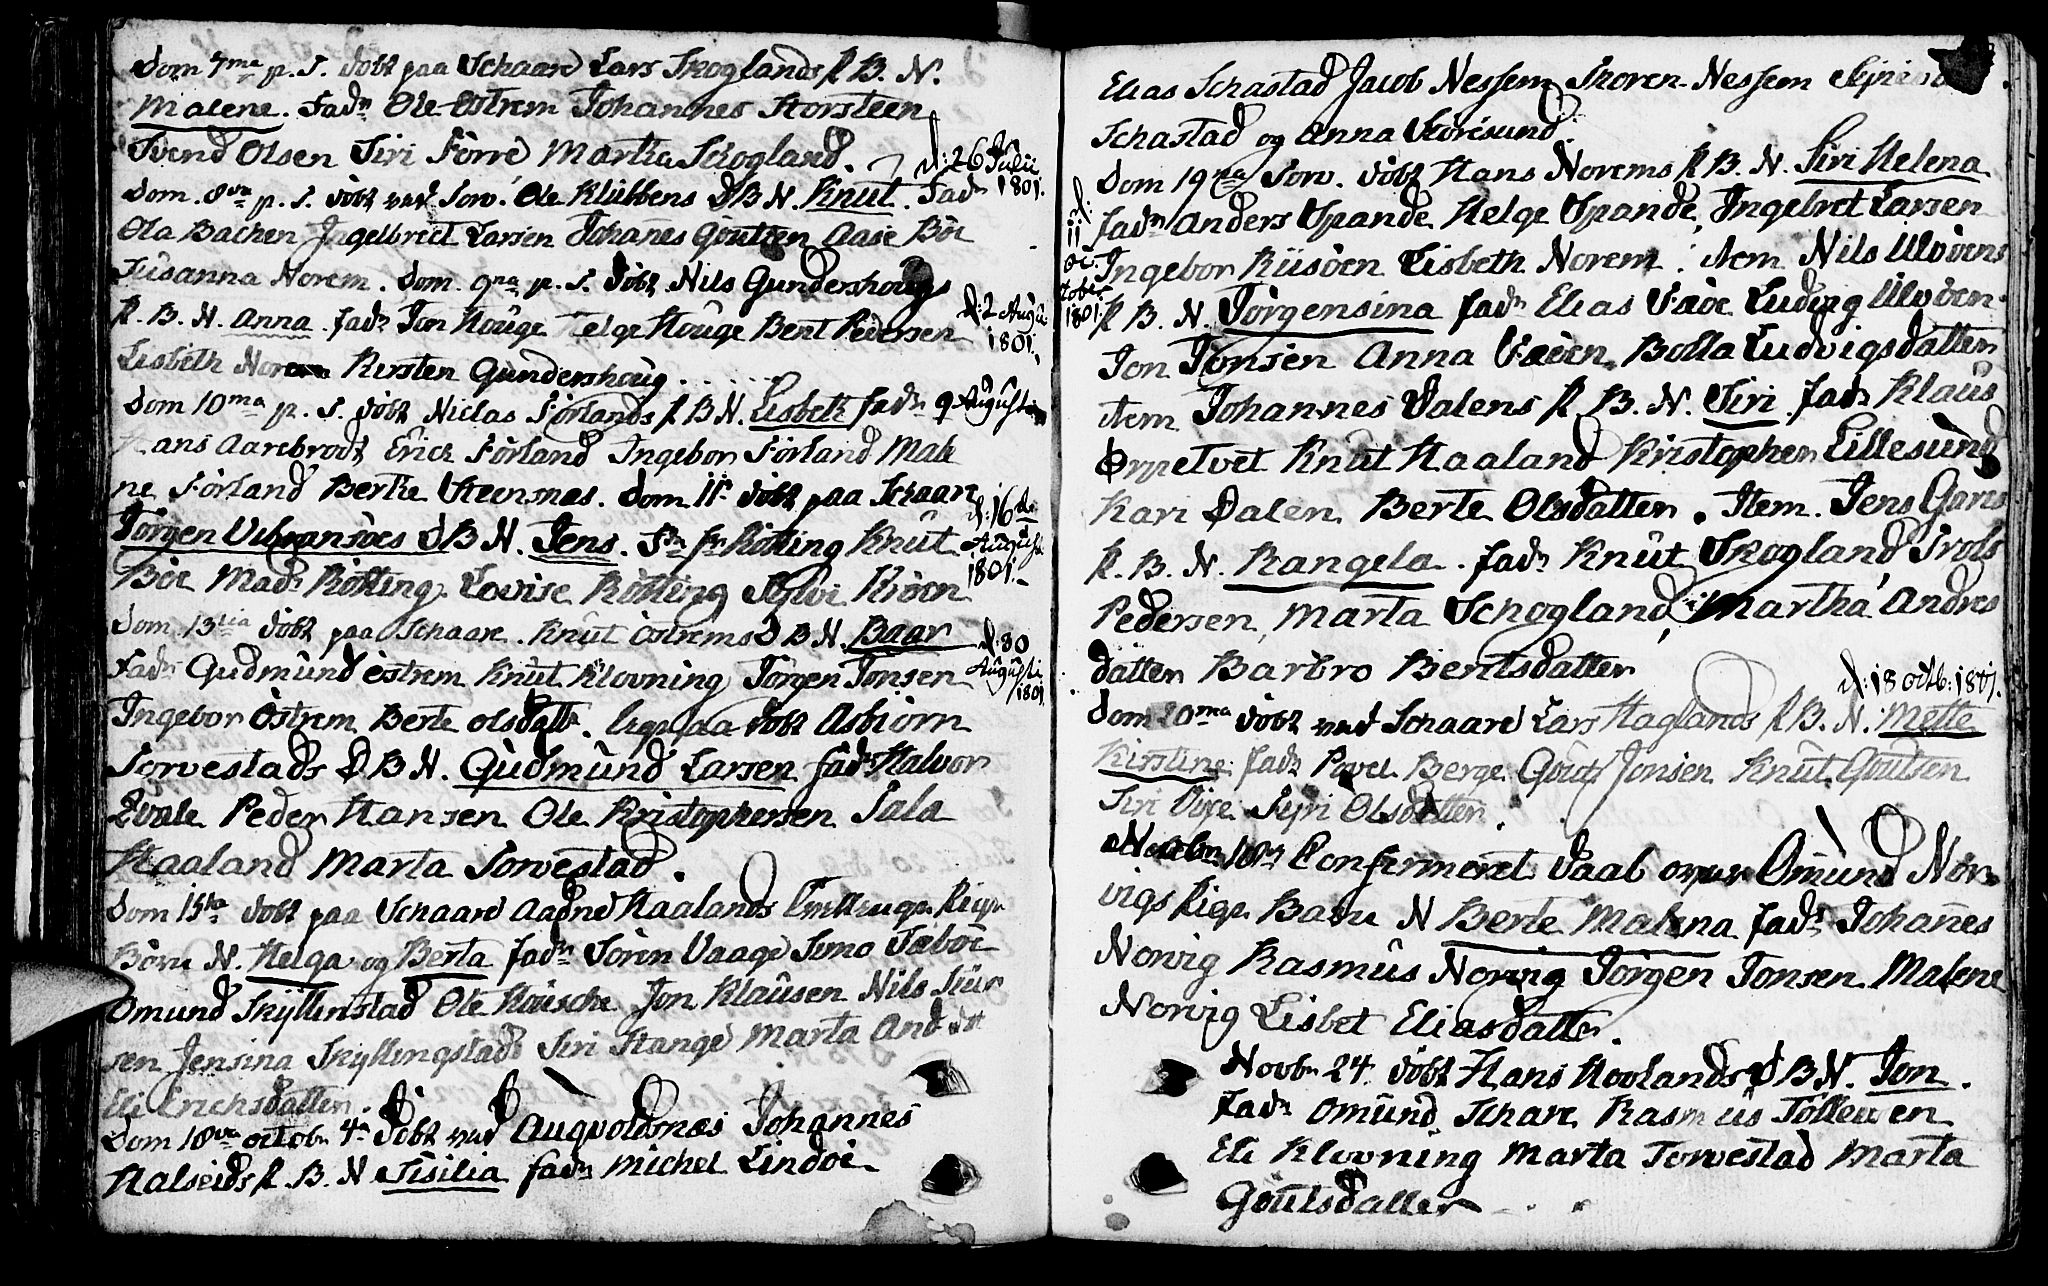 Dom 7ma p. T. döbt paa Schaare Lars Skoglands P B. N.
Malene. Fadr Ole Östrem Johannes Storsteen
Svend Olsen Siri Förre Martha Skogland.
d: 26 Julii 1801.
Dom. 8va p. T. döbt ved Torv. Ole Klubbens D B N. Knut. Fadr
Ola Bachen Ingelbrect Larsen Johanes Goutsen Aase Böe
Susanna Norem. Dom. 9na p. T. döbt Nils Gundershougs
P. B. N. Anna. fadr Jon Houge Helge Houge Bent Pedersen
d: 2 Augu 1801.
Lisbeth Norem Kirsten Gundershoug.
Dom 10ma p. T. döbt Niclas Förlands P B N. Lisbeth fadr
9 Augusti
Hans Aarebrodt Erich Förland Ingebor Förland Male
ne Förland Berthe Steensnes. Dom 11 döbt paa Schaare
Jörgen Vibransöes D B N. Jens. Fdr hr Kötting Knut
d: 16de August 1801.
Böe Madm Kötting Lovise Kötting Sylvi Kröen
Dom. 13tia döbt paa Schaare. Knut Östrems D B N. Baar
d: 30 Augusti 1801
Fadr Gudmund Östrem Knut Klovning Törgen Tönsen
Ingebor Östrem Berte olsdattr. ligesaa döbt Asbiörn
Torvestads D B N. Gudmund Larsen fadr Halvor
Qvale Peder Hansen Ole Kristophersen Sala
Haaland Marta Torvestad.
Dom 15ta döbt paa Schaare Aadne Haalands Tvillinge Pige
Börn N. Helga og Berta fadr Sören Vaage Simo Sæböe
Omund Skyllinstad Ole Kousche Jon Klausen Nils Siur
sen Jensina Skyllingstad Siri Stange Marta And dtt
Eli Erichsdatter.
Dom 18va octobr 4de döbt ved Augvoldsnæs Johannes
Halseids P. B. N Sisilia fadr Michel Lindöe
Elias Schastad Jacob Nessem Thoren Nessem
Schastad og Anna Storesund.
Dom 19na Torv. döbt Hans Norems P B. N. Siri Helena
d: 11 octobr 1801.
fadr Anders Spande Helge Spande, Ingebret Larsen
Ingebor Risöen Lisbeth Norem. item Nils Ulvöens
P B. N. Törgensina fadr Elias Vaae Ludvig Ulvöen
Jon Jonsen Anna Vaien Bolla Ludvigsdatter
item Johannes Dalens P B. N. Siri. fadr Klaus
Örpetvet Knut Haaland Kristopher Lillesund
Kari Dalen Berte Olsdatter. Item. Jens Gars
P. B. N. Rangela. fadr Knut Skogland Trols
Pedersen, Marta Schogland, Martha Andres
datter Barbro Berntsdatter
d: 18 octb: 1801.
Dom 20ma döbt ved Schaare Lars Haglands P B. N. Mette
Kirstine fadr Povel Berge Gout Jonsen Knut Goutsen
Siri Vige Siri Olsdatter.
Novbr 18de Confirmeret Daab over Omund Nor
vigs Pige Barn N Berte Malena fadr Johanes
Norvig Rasmus Norvig Jörgen Jonsen Malene
Norvig Lisbet Eliasdatter.
Novbr 24. döbt Hans Hovlands D B N. Jon.
Fadr Omund Schare Rasmus Töllevsen
Eli Klovning Marta Torvestad Marta
Goutsdatter